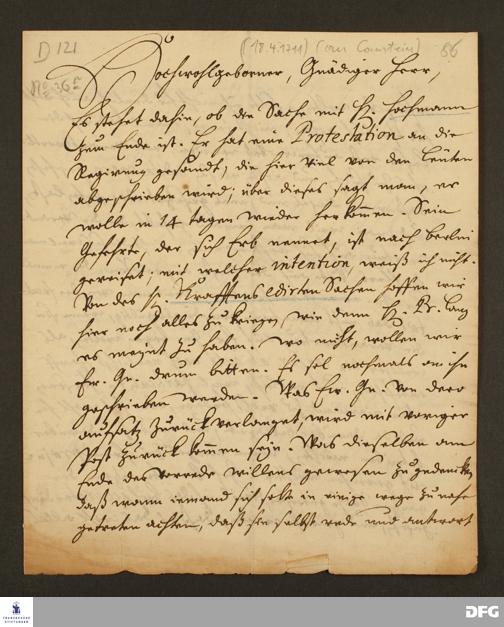 D 121 (18.4.1711) (an Canstein) 86
No 36
Hochwohlgeborner, Gnädiger Herr,
Es stehet dahin, ob die Sache mit H. Hochmann
zum Ende ist. Er hat eine Protestation an die
Regirung gesandt, die hier viel von den Leuten
abgeschrieben wird; über dieses sagt man, er
wolle in 14 tagen wieder her kommen. Sein
Gefehrte, der sich Erb nennet, ist nach Berlin
gereiset; mit welcher intention, weiß ich nicht.
Von des H. Krafftens edirten Sachen hoffen wir
hier noch alles zu kriegen, wie denn H. Dr. Lang
es meynt zu haben. Wo nicht, wollen wir
Ew. Gn. drum bitten. Es sol nochmals an ihn
geschrieben werden. Was Ew. Gn. von dero
aufsatz zurück verlanget, wird mit voriger
Post zurück kommen seyn. Was dieselben am
Ende der Vorrede willens gewesen zu gedencken,
daß wann iemand sich solte in einige wege zu nahe
getreten achten, daß sie selbst rede und antwort
FRANCKESCHE
STIFTUNGEN
DFG